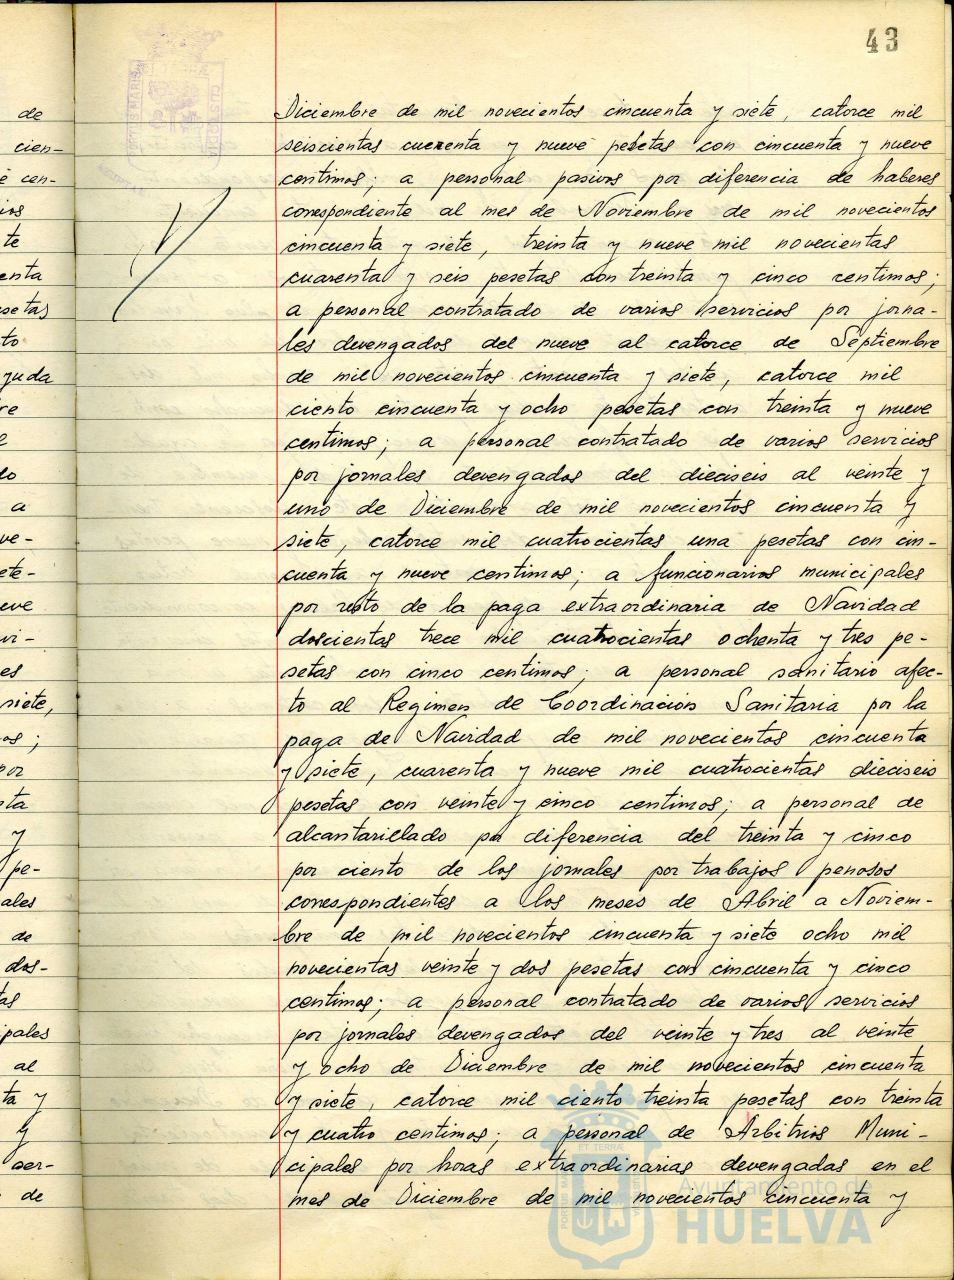 43
Diciembre de mil novecientos cincuenta y siete, catorce mil
seiscientas cuarenta y nueve pesetas con cincuenta y nueve
centimos; a personal pasivos por diferencia de haberes
correspondiente al mes de Noviembre de mil novecientos
cincuenta y siete, treinta y nueve mil novecientas
cuarenta y seis pesetas con treinta y cinco centimos;
a personal contratado de varios servicios por jorna-
les devengados del nueve al catorce de Septiembre
de mil novecientos cincuenta y siete, catorce mil
ciento cincuenta y ocho pesetas con treinta y nueve
centimos; a personal contratado de varios servicios
por jornales devengados del dieciseis al veinte y
uno de Diciembre de mil novecientos cincuenta y
siete, catorce mil cuatrocientas una pesetas con cin-
cuenta y nueve centimos; a funcionarios municipales
por resto de la paga extraordinaria de Navidad
doscientas trece mil cuatrocientas ochenta y tres pe-
setas con cinco centimos; a personal sanitario afec-
to al Regimen de Coordinación Sanitaria por la
paga de Navidad de mil novecientos cincuenta
y siete, cuarenta y nueve mil cuatrocientas dieciseis
pesetas con veinte y cinco centimos; a personal de
alcantarillado por diferencia del treinta y cinco
por ciento de los jornales por trabajos penosos
correspondientes a los meses de Abril a Noviem-
bre de mil novecientos cincuenta y siete ocho mil
novecientas veinte y dos pesetas con cincuenta y cinco
centimos; a personal contratado de varios servicios
por jornales devengados del veinte y tres al veinte
y ocho de Diciembre de mil novecientos cincuenta
y siete, catorce mil ciento treinta pesetas con treinta
y cuatro centimos; a personal de Arbitrios Muni-
cipales por horas extraordinarias devengadas en el
mes de Diciembre de mil novecientos cincuenta y
Ayuntamiento de
HUELVA